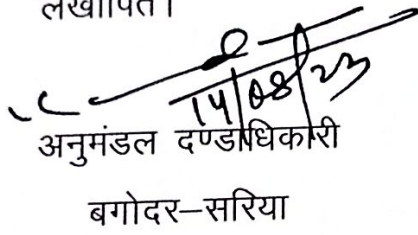 लेखापित।
14/08/23
अनुमंडल दण्डाधिकारी
बगोदर–सरिया